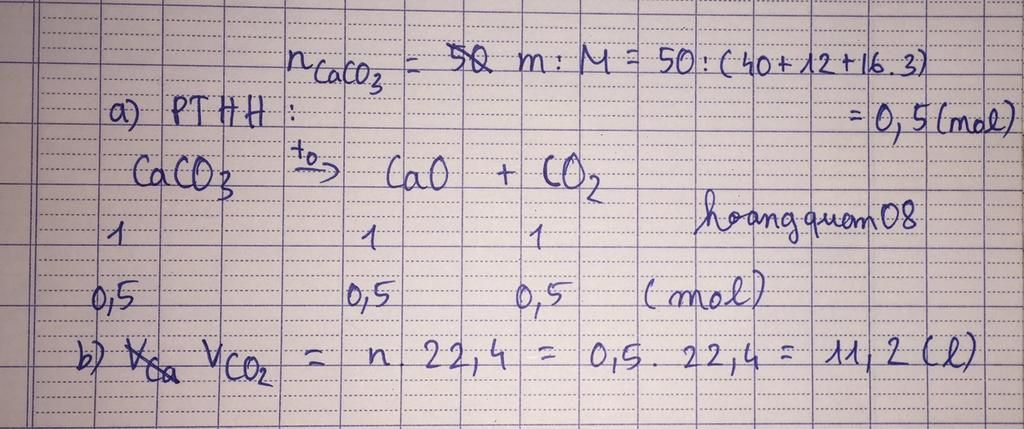 nCaCO3 = m : M = 50 : (40 + 12 + 16 . 3)
a) PTHH :
= 0,5 (mol)
CaCO3 to→ CaO + CO2
hoangquan08
1 1 1
0,5 0,5 0,5 (mol)
b) VCO2 = n . 22,4 = 0,5 . 22,4 = 11,2 (l)